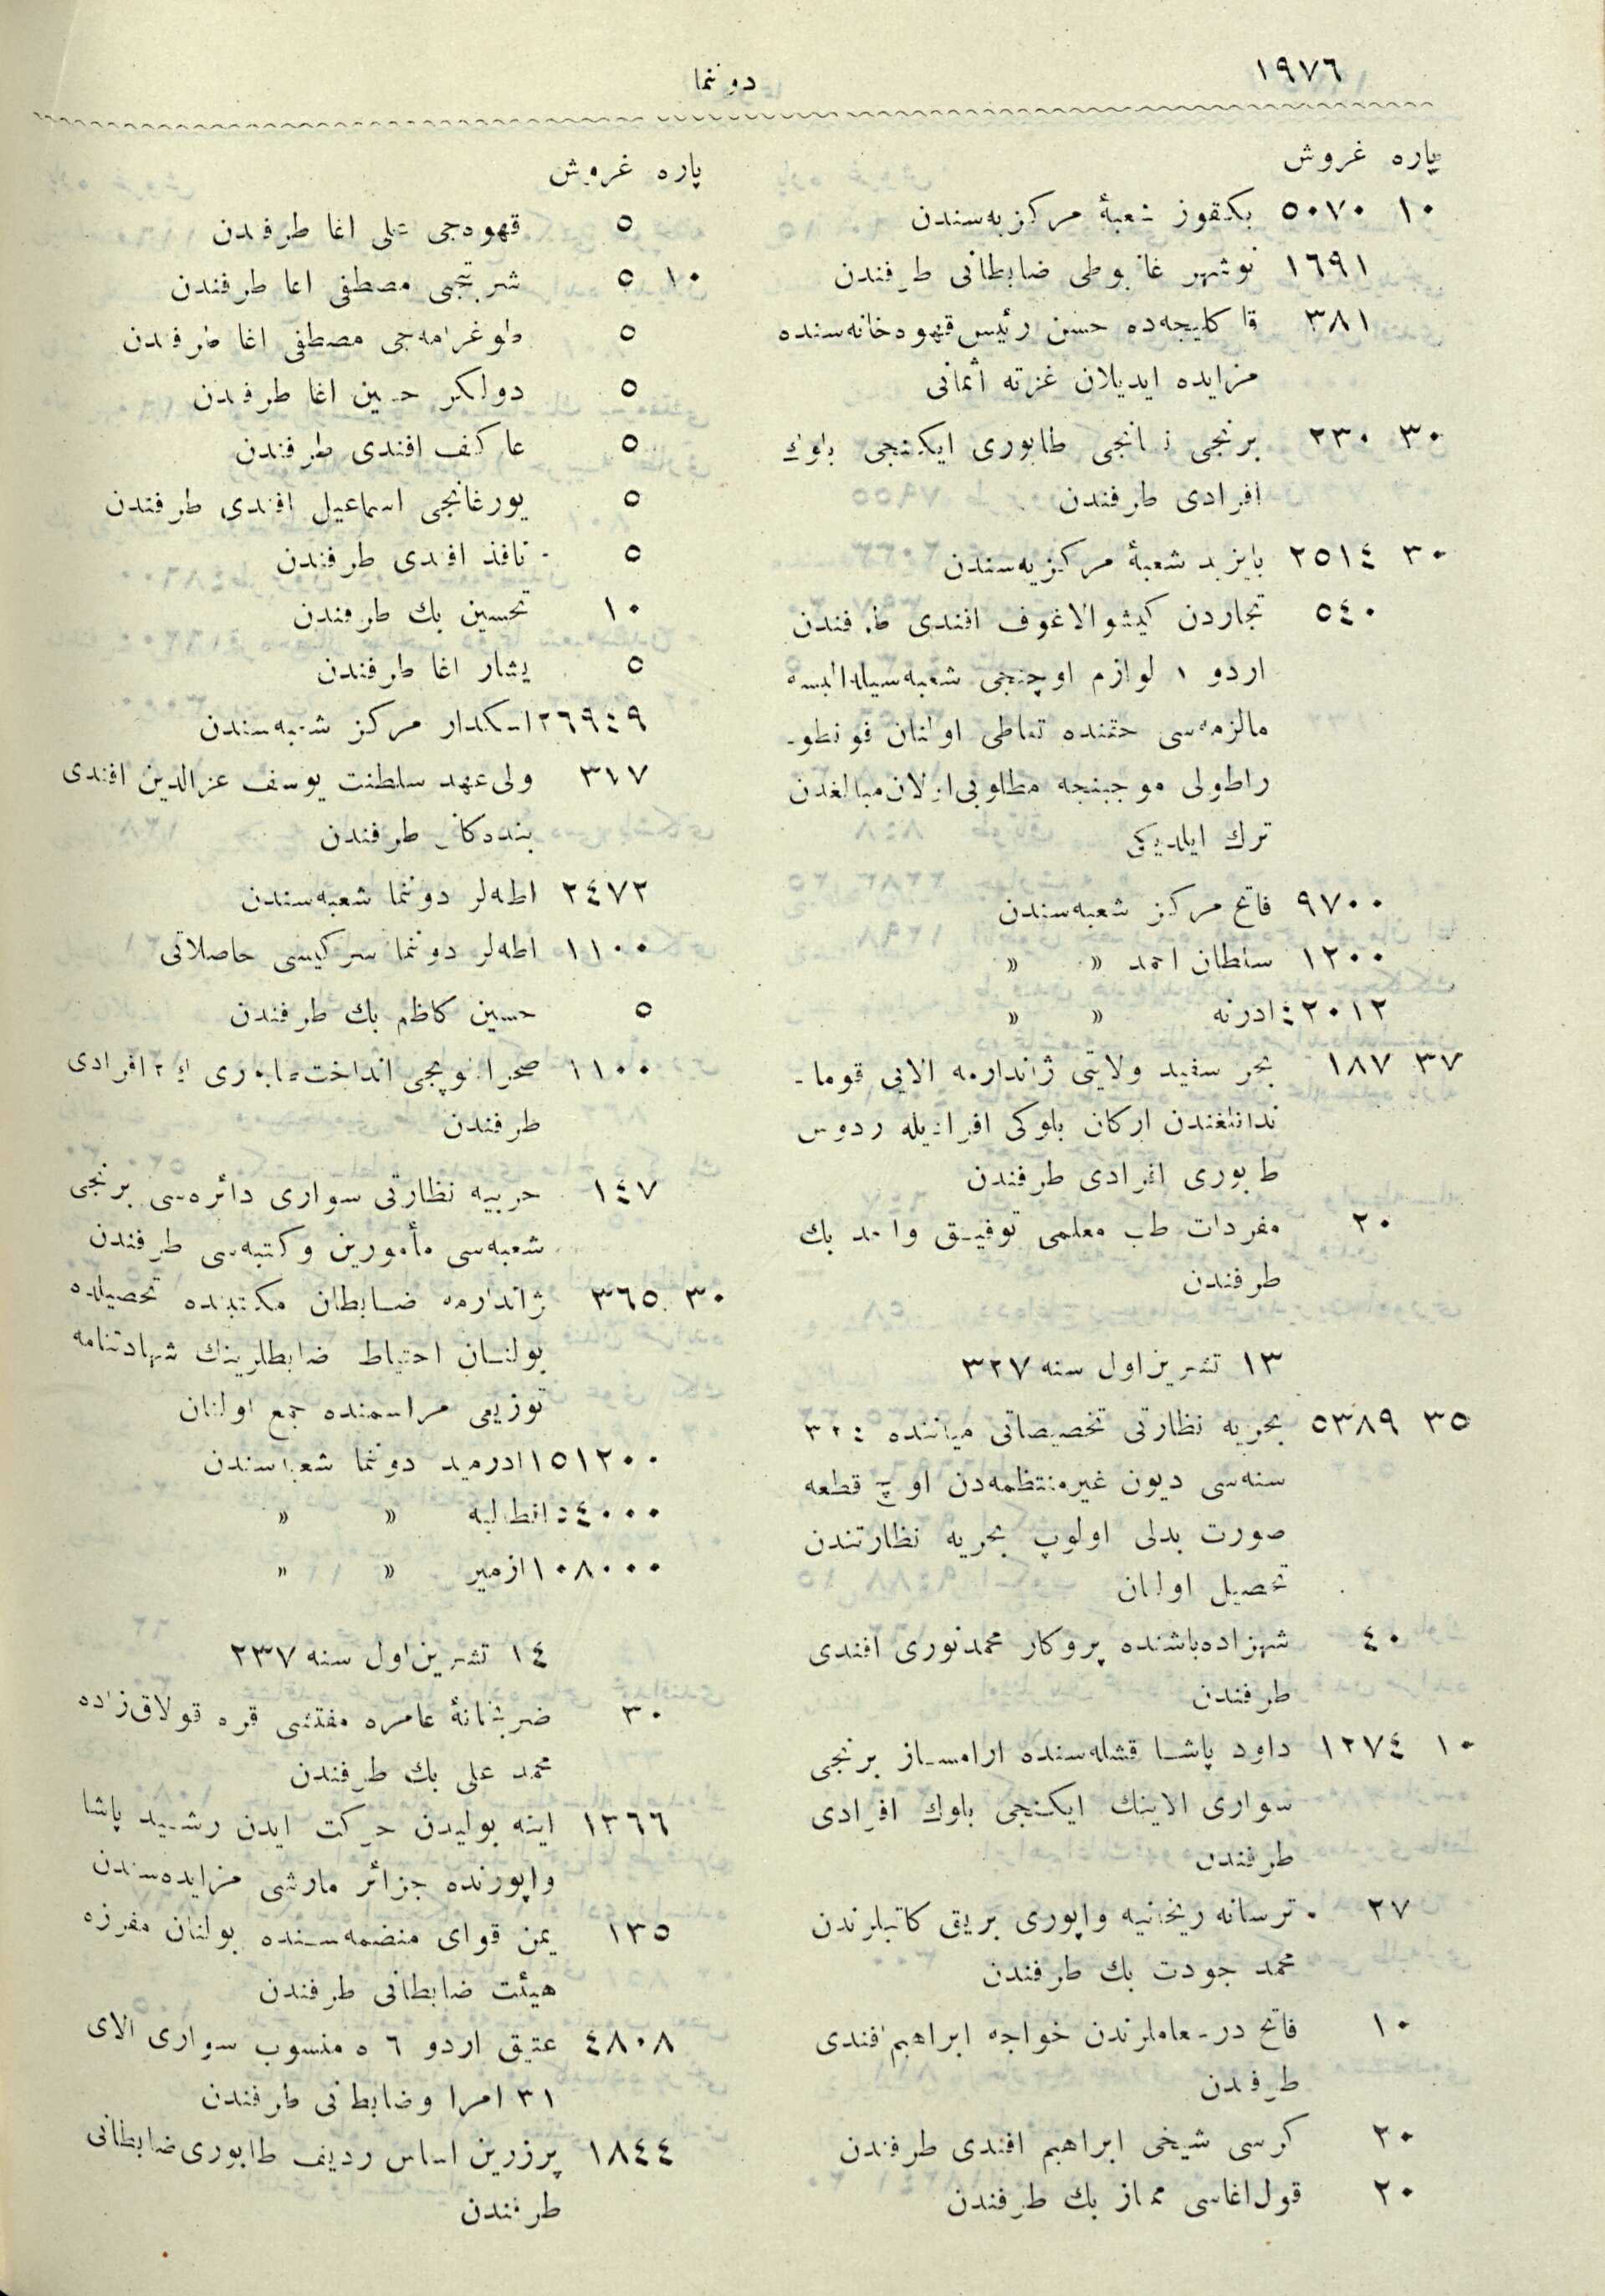 ١٩٧٦
دوننما
پاره غروش
١٠ ٥٠٧٠ بكقوز شعبهٔ مركزيه‌سندن
١٦٩١ نوشهر غانبوطی ضابطانی طرفندن
٣٨١ قا كليجه‌ده حسن رئیس قهوه‌خانه‌سنده
مزایده ایدیلان غزته اثمانی
٣٠ ٢٣٠ برنجی نشانجی طابوری ایكنجی بلوك
افرادی طرفندن
٣٠ ٢٥١٤ بایزید شعبهٔ مركزیه‌سندن
٥٤٠ تجاردن افندی طرفندن
اردو ١ لوازم اوچنجی شعبه‌سیله البسه
مالزمه‌سی حقنده تعاطی اولنان قونطو-
راطولی موجبنجه مطلوبی اولان مبالغدن
ترك ایلدیكی
٩٧٠٠ فاتح مركز شعبه‌سندن
١٢٠٠ سلطان احمد » »
٢٠١٢٤ ادرنه » »
٣٧ ١٨٧ بحر سفید ولایتی ژاندارمه الایی قوما-
ندانلغندن اركان بلوكی افرادیله ردوس
طابوری افرادی طرفندن
٢٠ مفردات طب معلمی توفیق واحد بك
طرفندن
١٣ تشرین‌اول سنه ٣٢٧
٣٥ ٥٣٨٩ بحریه نظارتی تخصیصاتی میاننده ٣٢٤
سنه‌سی دیون غیرمنتظمه‌دن اوچ قطعه
صورت بدلی اولوپ بحریه نظارتندن
تحصیل اولنان
٤٠ شهزاده‌باشنده پروكار محمدنوری افندی
طرفندن
١٠ ١٢٧٤ داود پاشا قشله‌سنده ارامساز برنجی
سواری الاینك ایكنجی بلوك افرادی
طرفندن
٢٧ ترسانه ریخانیه واپوری بریق كاتبلرندن
محمد جودت بك طرفندن
١٠ فاتح درسعاملرندن خواجه ابراهیم افندی
طرفندن
٢٠ كرسی شیخی ابراهیم افندی طرفندن
٢٠ قول‌اغاسی ممتاز بك طرفندن
پاره غروش
٥ قهوه‌جی علی اغا طرفندن
١٠ ٥ شربتجی مصطفی اغا طرفندن
٥ طوغرامه‌جی مصطفی اغا طرفندن
٥ دولكر حسین اغا طرفندن
٥ عاكف افندی طرفندن
٥ یورغانجی اسماعیل افندی طرفندن
٥ نافذ افندی طرفندن
١٠ تحسین بك طرفندن
٥ یشار اغا طرفندن
٢٦٩٤٩ اسكدار مركز شعبه‌سندن
٣١٧ ولی‌عهد سلطنت یوسف عزالدین افندی
بندكان طرفندن
٢٤٧٢ اطه‌لر دوننما شعبه‌سندن
١١٠٠ اطه‌لر دوننما سركیسی حاصلاتی
٥ حسین كاظم بك طرفندن
١١٠٠ صحرا طوپجی انداخت طابوری بلوك ٢ افرادی
طرفندن
١٤٧ حربیه نظارتی سواری دائره‌سی برنجی
شعبه‌سی مأمورین وكتبه‌سی طرفندن
٣٠ ٣٦٥ ژاندارمه ضابطان مكتبنده تحصیلده
بولنان احتیاط ضابطلرینك شهادتنامه
توزیعی مراسمنده جمع اولنان
١٥١٢٠٠ ادرمید دوننما شعبه‌سندن
٤٤٠٠٠ انطالیه » »
١٠٨٠٠٠ ازمیر » »
١٤ تشرین‌اول سنه ٢٣٧
٣٠ ضربخانهٔ عامره مفتشی قره قولاق‌زاده
محمد علی بك طرفندن
١٣٦٦ اینه بولیدن حركت ایدن رشید پاشا
واپورنده جزائر مارشی مزایده‌سندن
١٣٥ یمن قوای منضمه‌سنده بولنان مفرزه
هیئت ضابطانی طرفندن
٤٨٠٨ عتیق اردو ٥٦ منسوب سواری الای
٣١ امرا وضابطانی طرفندن
١٨٤٤ پرزرین اساس ردیف طابوری ضابطانی
طرفندن